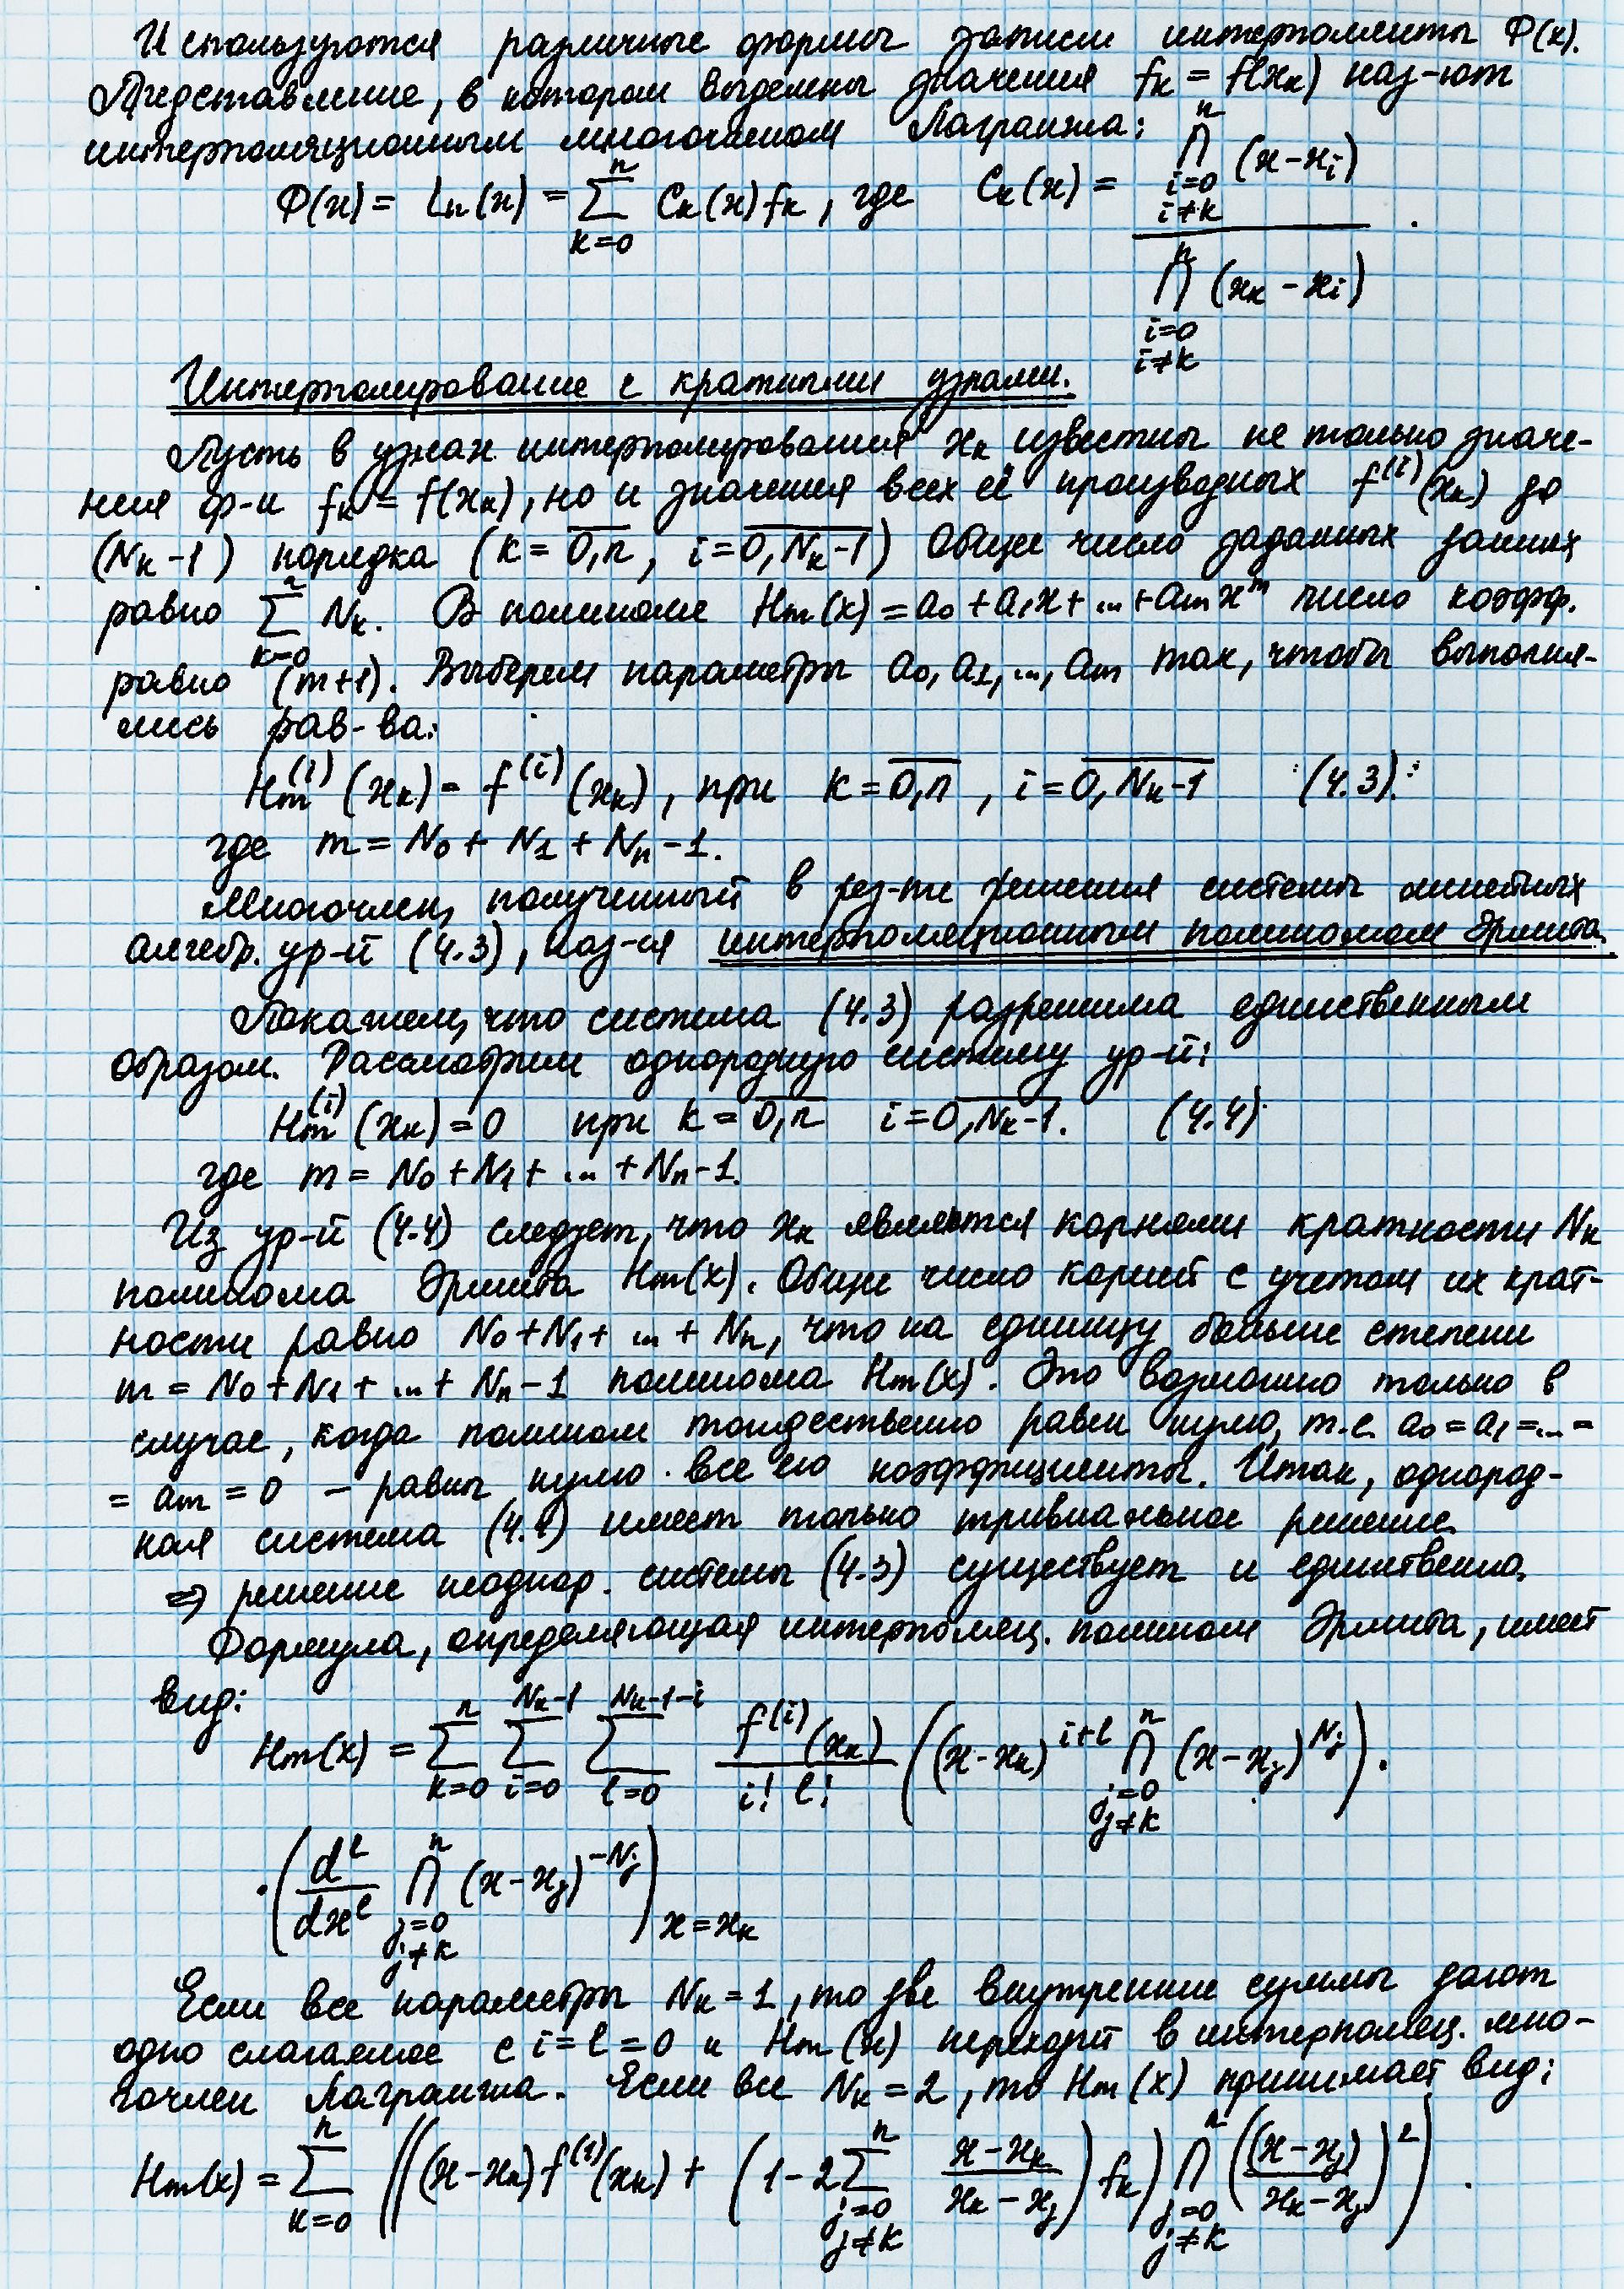 Используются различные формы записи интерполянты Φ(x).
Представление, в котором выделены значения fₖ = f(xₖ) наз-ют
интерполяционным многочленом Лагранжа:
Φ(x) = Lₙ(x) = ∑_{k=0}^{n} Cₖ(x) fₖ, где Cₖ(x) = \frac{∏_{i=0, i≠k}^{n} (x-xᵢ)}{∏_{i=0, i≠k}^{n} (xₖ-xᵢ)}.
Интерполирование с кратными узлами.
Пусть в узлах интерполирования xₖ известны не только значе-
ния ф-и fₖ = f(xₖ), но и значения всех её производных f^{(i)}(xₖ) до
(Nₖ-1) порядка (k = \overline{0,n}, i = \overline{0,Nₖ-1}) Общее число заданных данных
равно ∑_{k=0}^{n} Nₖ. В полиноме Hₘ(x) = a₀ + a₁x + ... + aₘx^m число коэфф.
равно (m+1). Выберем параметры a₀, a₁, ..., aₘ так, чтобы выполня-
лись рав-ва:
Hₘ^{(i)}(xₖ) = f^{(i)}(xₖ), при k = \overline{0,n}, i = \overline{0,Nₖ-1} (4.3).
где m = N₀ + N₁ + Nₙ - 1.
Многочлен, полученный в рез-те решения системы линейных
алгебр. ур-й (4.3), наз-ся интерполяционным полиномом Эрмита.
Покажем, что система (4.3) разрешима единственным
образом. Рассмотрим однородную систему ур-й:
Hₘ^{(i)}(xₖ) = 0 при k = \overline{0,n} i = \overline{0,Nₖ-1}. (4.4)
где m = N₀ + N₁ + ... + Nₙ - 1.
Из ур-й (4.4) следует, что xₖ являются корнями кратности Nₖ
полинома Эрмита Hₘ(x). Общее число корней с учетом их крат-
ности равно N₀ + N₁ + ... + Nₙ, что на единицу больше степени
m = N₀ + N₁ + ... + Nₙ - 1 полинома Hₘ(x). Это возможно только в
случае, когда полином тождественно равен нулю, т.е. a₀ = a₁ = ... =
= aₘ = 0 - равны нулю все его коэффициенты. Итак, однород-
ная система (4.4) имеет только тривиальное решение
⇒ решение неоднор. системы (4.3) существует и единственно.
Формула, определяющая интерполяц. полином Эрмита, имеет
вид:
Hₘ(x) = ∑_{k=0}^{n} ∑_{i=0}^{Nₖ-1} ∑_{l=0}^{Nₖ-1-i} \frac{f^{(i)}(xₖ)}{i! l!} ((x-xₖ)^{i+l} ∏_{j=0, j≠k}^{n} (x-xⱼ)^{Nⱼ}) ·
· (\frac{d^l}{dx^l} ∏_{j=0, j≠k}^{n} (x-xⱼ)^{-Nⱼ})_{x=xₖ}
Если все параметры Nₖ = 1, то две внутренние суммы дают
одно слагаемое с i = l = 0 и Hₘ(x) переходит в интерполяц. мно-
гочлен Лагранжа. Если все Nₖ = 2, то Hₘ(x) принимает вид:
Hₘ(x) = ∑_{k=0}^{n} (((x-xₖ) f^{(1)}(xₖ) + (1 - 2∑_{j=0, j≠k}^{n} \frac{x-xₖ}{xₖ-xⱼ}) fₖ) ∏_{j=0, j≠k}^{n} (\frac{(x-xⱼ)}{xₖ-xⱼ})^2).